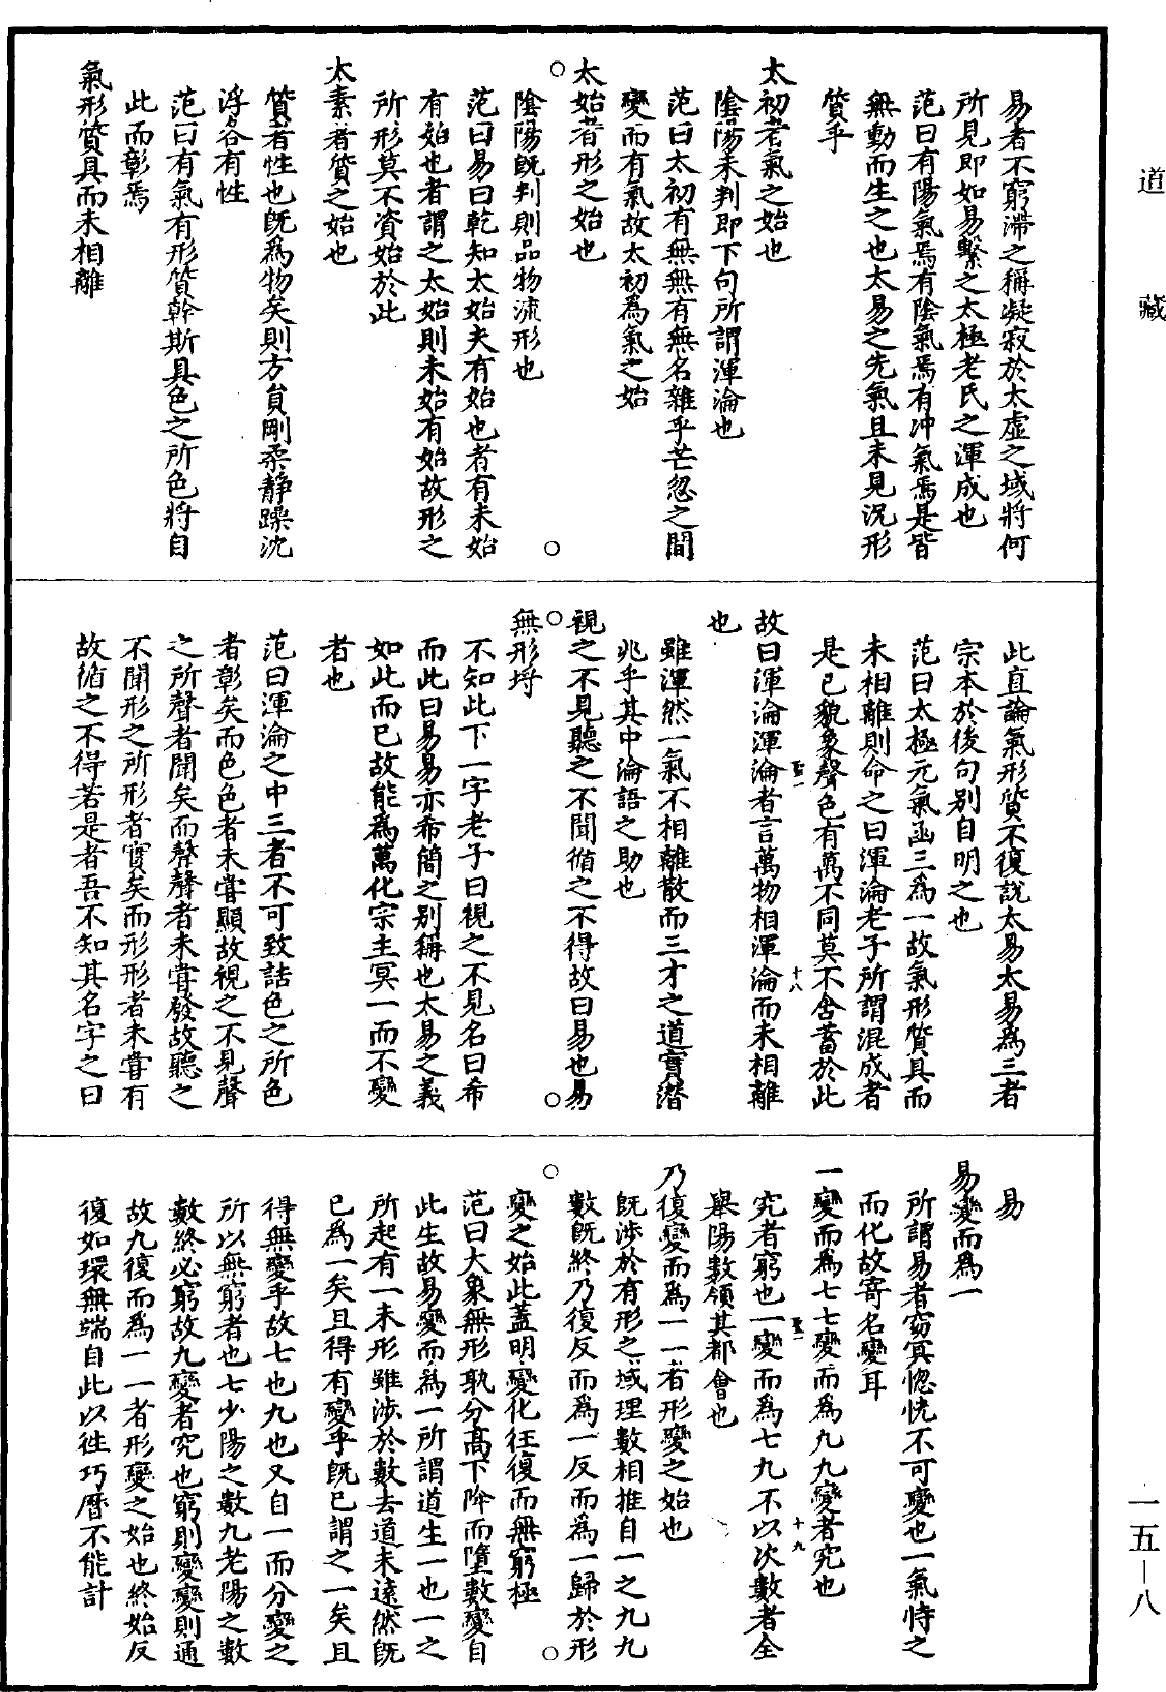 道藏
易者不窮滯之稱凝寂於太虛之域將何
所見即如易繫之太極老氏之渾成也
范曰有陽氣焉有陰氣焉有沖氣焉是皆
無動而生之也太易之先氣且未見況形
質乎
太初者氣之始也
陰陽未判即下句所謂渾淪也
范曰太初有無無有無名雜乎芒忽之間
變而有氣故太初為氣之始
太始者形之始也
陰陽既判則品物流形也
范曰易曰乾知太始夫有始也者有未始
有始也者謂之太始則未始有始故形之
所形莫不資始於此
太素者質之始也
質者性也既為物矣則方員剛柔靜躁沈
浮各有性
范曰有氣有形質幹斯具色之所色將自
此而彰焉
氣形質具而未相離
此直論氣形質不復說太易太易為三者
宗本於後句別自明之也
范曰太極元氣函三為一故氣形質具而
未相離則命之曰渾淪老子所謂混成者
是已貌象聲色有萬不同莫不含蓄於此
故曰渾淪渾淪者言萬物相渾淪而未相離
也
雖渾然一氣不相離散而三才之道實潛
兆乎其中淪語之助也
視之不見聽之不聞循之不得故曰易也易
無形埒
不知此下一字老子曰視之不見名曰希
而此曰易易亦希簡之別稱也太易之義
如此而已故能為萬化宗主冥一而不變
者也
范曰渾淪之中三者不可致詰色之所色
者彰矣而色色者未嘗顯故視之不見聲
之所聲者聞矣而聲聲者未嘗發故聽之
不聞形之所形者實矣而形形者未嘗有
故循之不得若是者吾不知其名字之曰
易
易變而為一
所謂易者窈冥惚恍不可變也一氣恃之
而化故寄名變耳
一變而為七七變而為九九變者究也
究者窮也一變而為七九不以次數者全
舉陽數領其都會也
乃復變而為一一者形變之始也
既涉於有形之域理數相推自一之九九
數既終乃復反而為一反而為一歸於形
變之始此蓋明變化往復而無窮極
范曰大象無形孰分高下降而墮數變自
此生故易變而為一所謂道生一也一之
所起有一未形雖涉於數去道未遠然既
已為一矣且得有變乎既已謂之一矣且
得無變乎故七也九也又自一而分變之
所以無窮者也七少陽之數九老陽之數
數終必窮故九變者究也窮則變變則通
故九復而為一一者形變之始也終始反
復如環無端自此以往巧曆不能計
一五—八